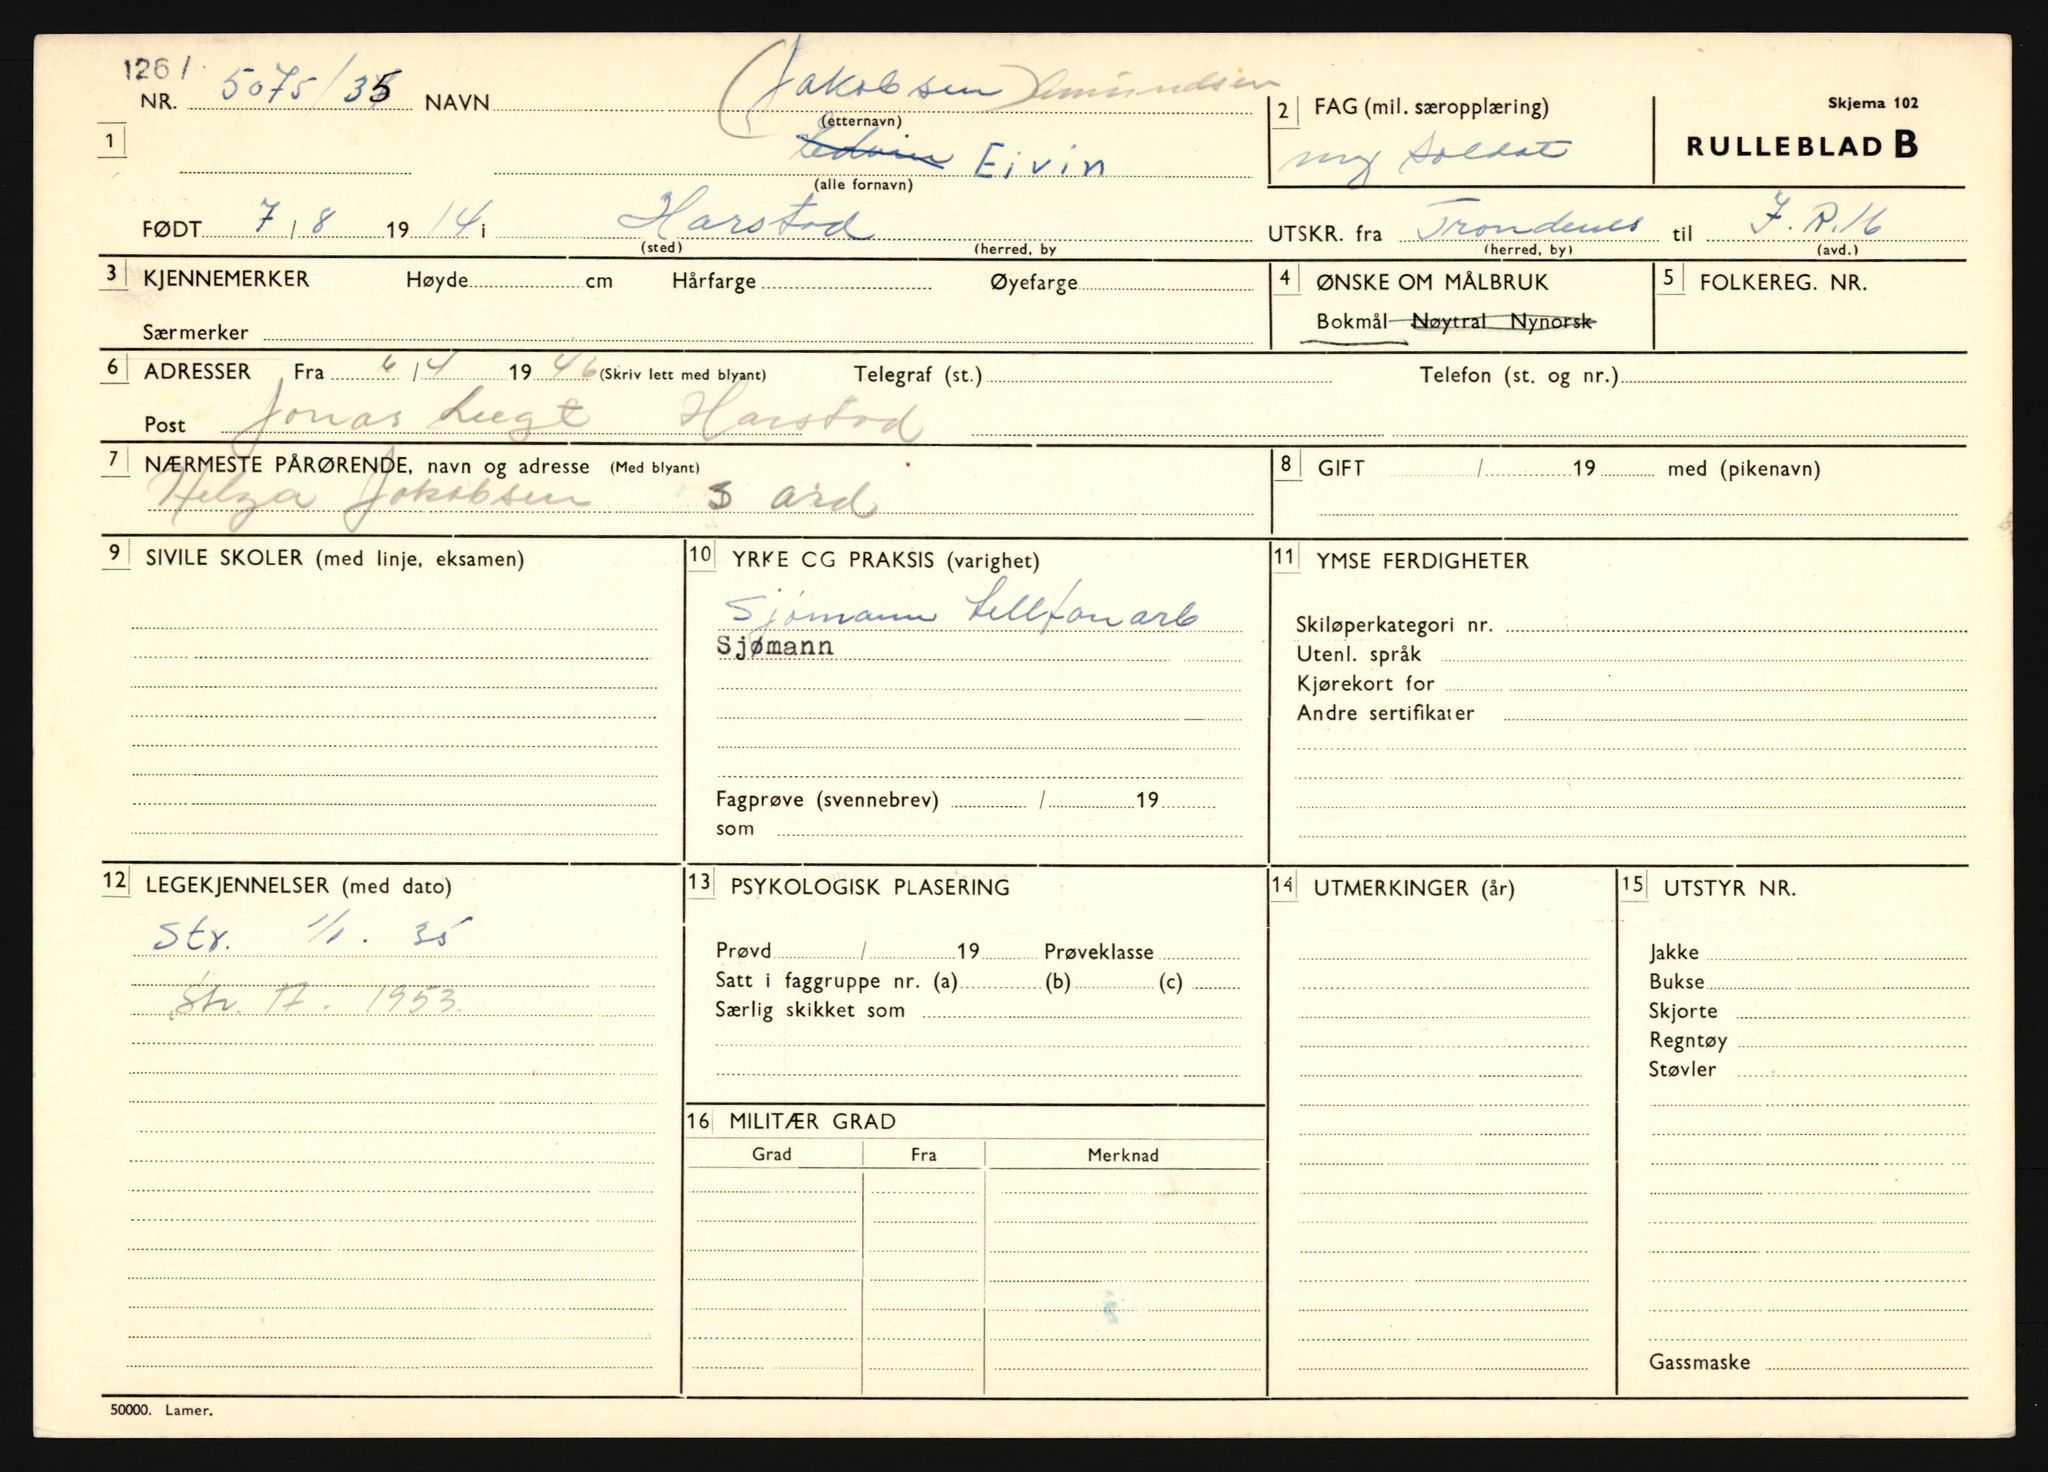 1261
NR. 5075/35 NAVN (Jakobsen) Amundsen
(etternavn)
1
Edvin Eivin
(alle fornavn)
2 FAG (mil. særopplæring)
Soldat
Skjema 102
RULLEBLAD B
FØDT 7 / 8 19 14 i Harstad
(sted) (herred, by
UTSKR. fra Trondenes til I.R.16
(herred, by) (avd.)
3 KJENNEMERKER Høyde cm Hårfarge Øyefarge
Særmerker
4 ØNSKE OM MÅLBRUK
Bokmål Nøytral Nynorsk
5 FOLKEREG. NR.
6 ADRESSER Fra 6 / 4 19 46 (Skriv lett med blyant) Telegraf (st.) Telefon (st. og nr.)
Post Jonas Harstad
7 NÆRMESTE PÅRØRENDE, navn og adresse (Med blyant)
Helga Jakobsen S ard
8 GIFT / 19 med (pikenavn)
9 SIVILE SKOLER (med linje, eksamen)
10 YRKE CG PRAKSIS (varighet)
Sjømann tellfonarb
Sjømann
Fagprøve (svennebrev) / 19
som
11 YMSE FERDIGHETER
Skiløperkategori nr.
Utenl. språk
Kjørekort for
Andre sertifikater
12 LEGEKJENNELSER (med dato)
Str. 1/1. 35
Str. 17. 1953.
13 PSYKOLOGISK PLASERING
Prøvd / 19 Prøveklasse
Satt i faggruppe nr. (a) (b) (c)
Særlig skikket som
14 UTMERKINGER (år)
15 UTSTYR NR.
Jakke
Bukse
Skjorte
Regntøy
Støvler
Gassmaske
16 MILITÆR GRAD
Grad Fra Merknad
50000. Lamer.